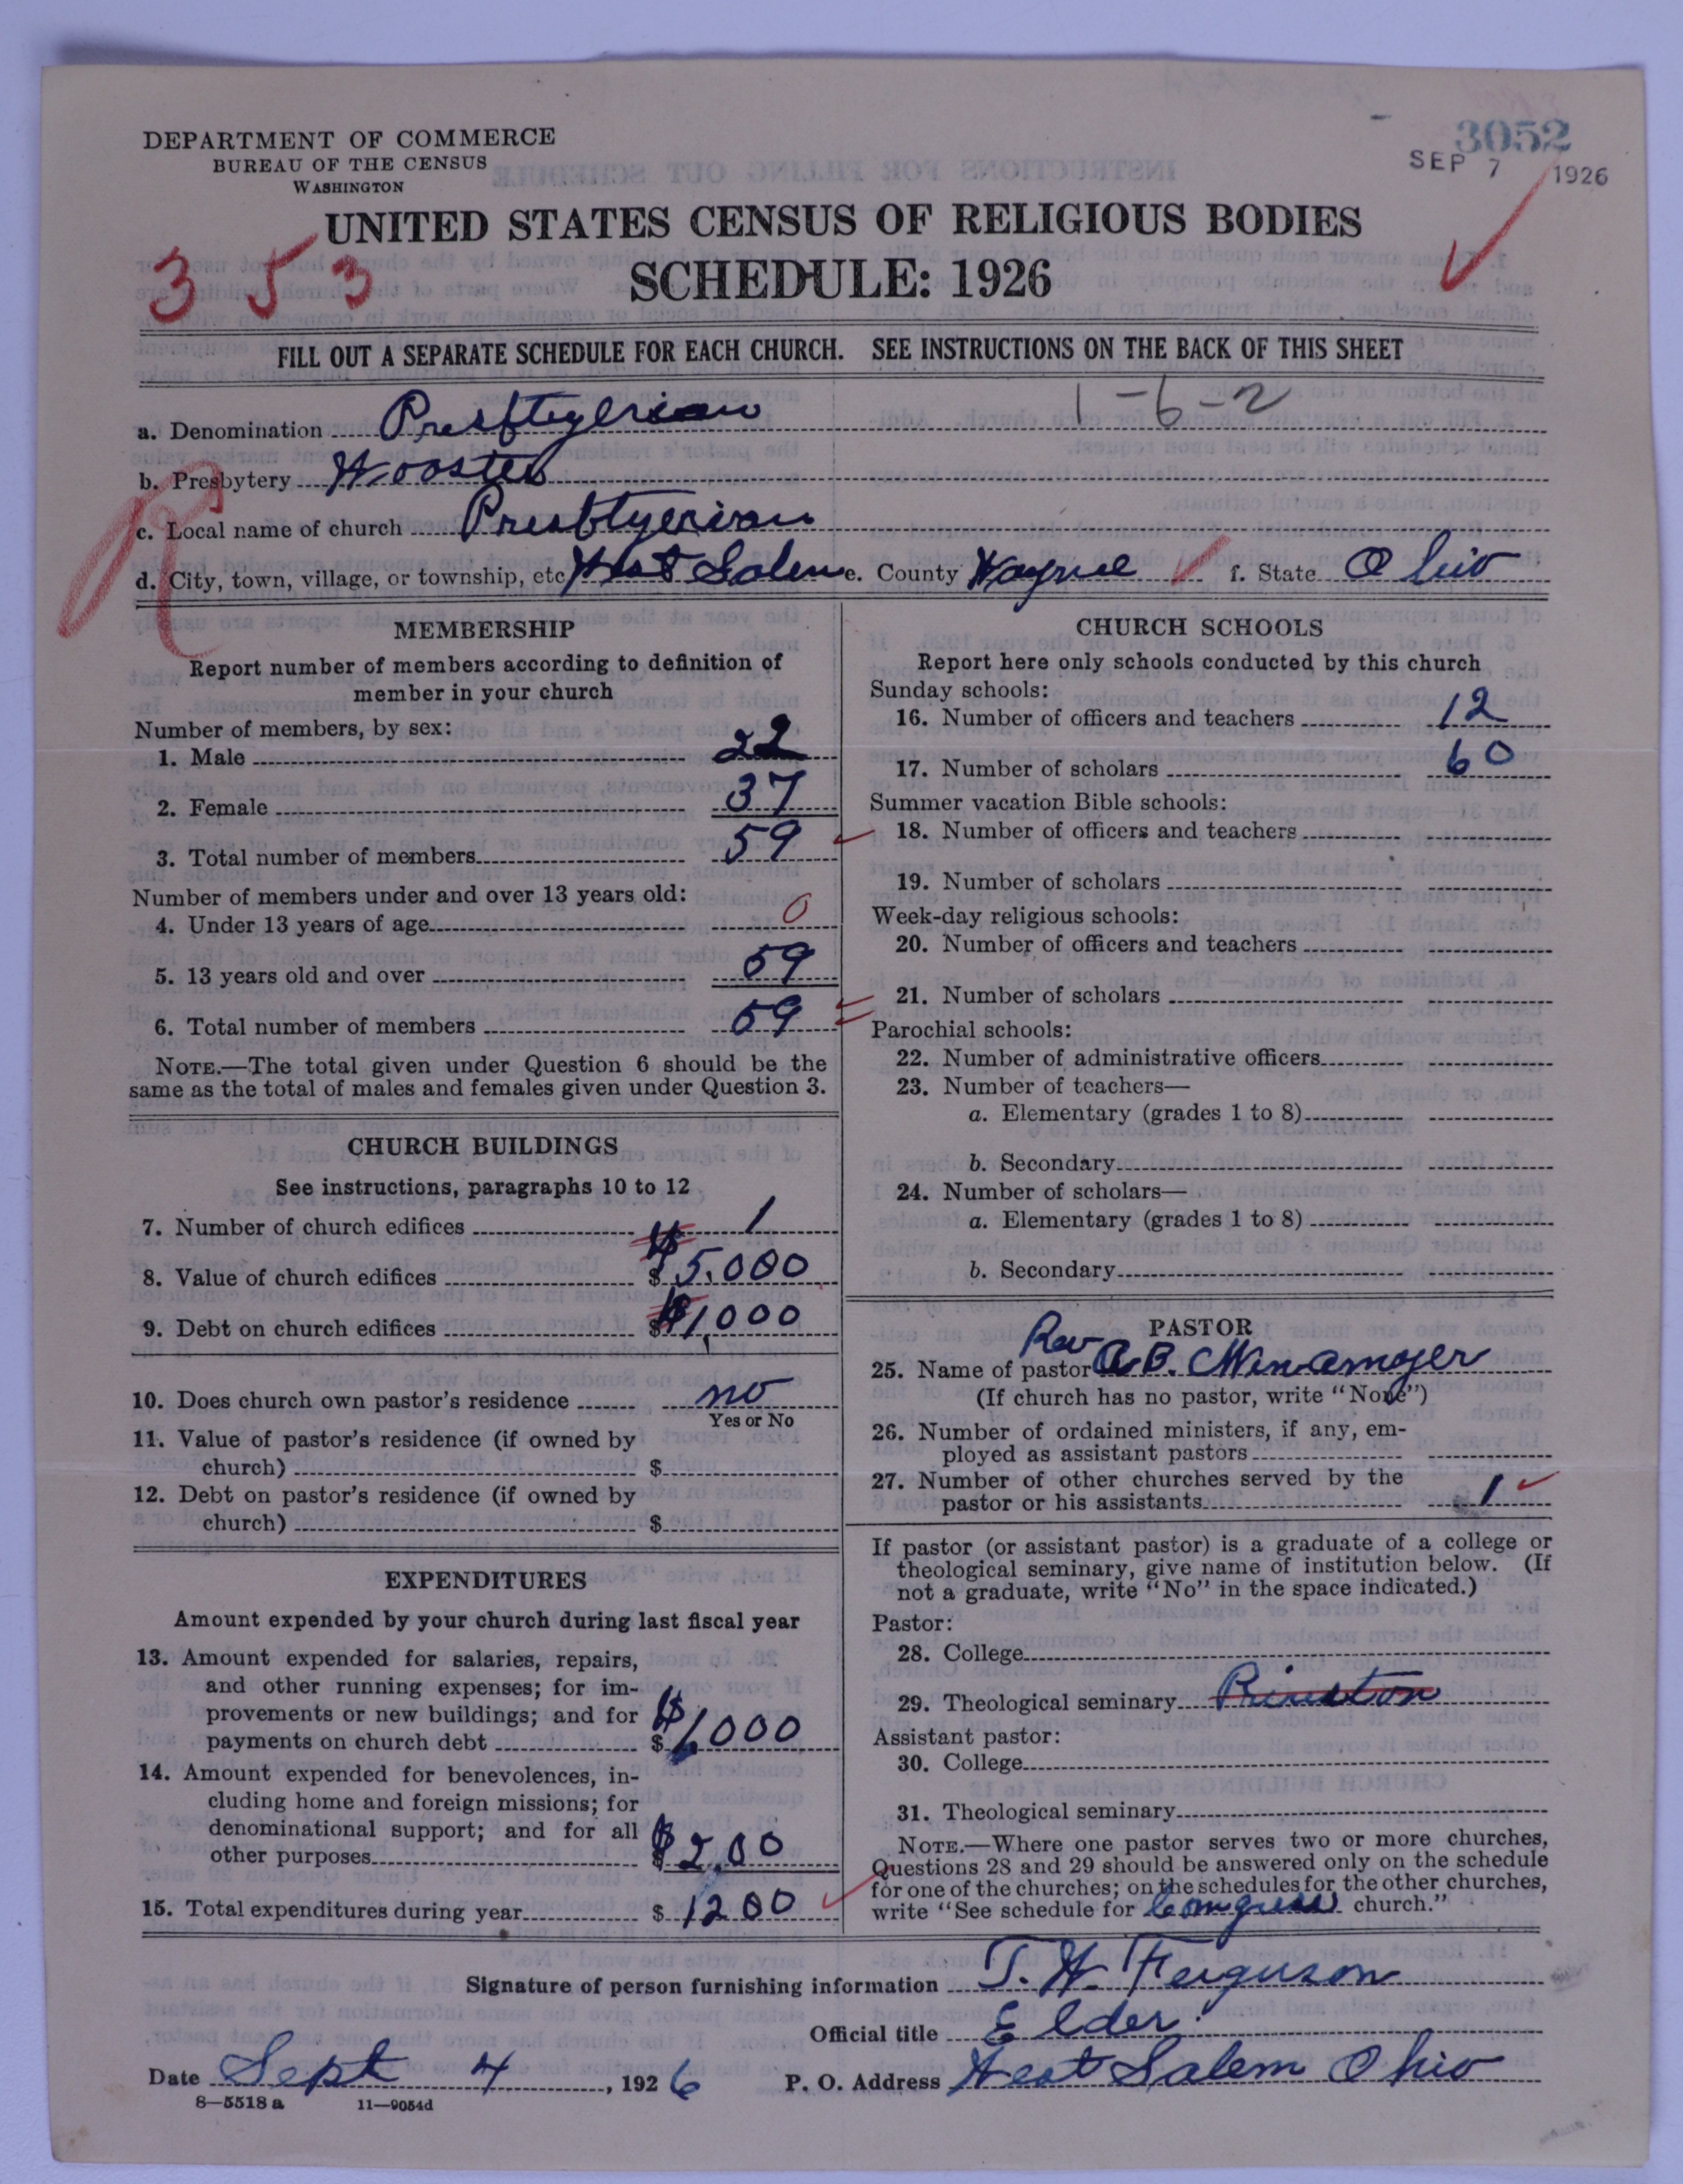 DEPARTMENT OF COMMERCE
BUREAU OF THE CENSUS
WASHINGTON
3052
SEP 7 1926
UNITED STATES CENSUS OF RELIGIOUS BODIES
353
SCHEDULE: 1926
FILL OUT A SEPARATE SCHEDULE FOR EACH CHURCH. SEE INSTRUCTIONS ON THE BACK OF THIS SHEET
1-6-2
a. Denomination Presbtyerian
b. Presbytery Wooster
c. Local name of church Presbtyerian
d. City, town, village, or township, etc West Salem e. County Wayne f. State Ohio
MEMBERSHIP
Report number of members according to definition of
member in your church
Number of members, by sex:
1. Male 22
2. Female 37
3. Total number of members 59
Number of members under and over 13 years old:
4. Under 13 years of age 0
5. 13 years old and over 59
6. Total number of members 59
NOTE.—The total given under Question 6 should be the
same as the total of males and females given under Question 3.
CHURCH BUILDINGS
See instructions, paragraphs 10 to 12
7. Number of church edifices 1
8. Value of church edifices $ $5,000
9. Debt on church edifices $ $1,000
10. Does church own pastor's residence no
Yes or No
11. Value of pastor's residence (if owned by
church) $
12. Debt on pastor's residence (if owned by
church) $
EXPENDITURES
Amount expended by your church during last fiscal year
13. Amount expended for salaries, repairs,
and other running expenses; for im-
provements or new buildings; and for
payments on church debt $ $1,000
14. Amount expended for benevolences, in-
cluding home and foreign missions; for
denominational support; and for all
other purposes $ $2.00
15. Total expenditures during year $ 1200
CHURCH SCHOOLS
Report here only schools conducted by this church
Sunday schools:
16. Number of officers and teachers 12
17. Number of scholars 60
Summer vacation Bible schools:
18. Number of officers and teachers
19. Number of scholars
Week-day religious schools:
20. Number of officers and teachers
21. Number of scholars
Parochial schools:
22. Number of administrative officers
23. Number of teachers—
a. Elementary (grades 1 to 8)
b. Secondary
24. Number of scholars—
a. Elementary (grades 1 to 8)
b. Secondary
PASTOR
25. Name of pastor Rev A. B.
(If church has no pastor, write "None")
26. Number of ordained ministers, if any, em-
ployed as assistant pastors
27. Number of other churches served by the
pastor or his assistants 1
If pastor (or assistant pastor) is a graduate of a college or
theological seminary, give name of institution below. (If
not a graduate, write "No" in the space indicated.)
Pastor:
28. College
29. Theological seminary Princton
Assistant pastor:
30. College
31. Theological seminary
NOTE.—Where one pastor serves two or more churches,
Questions 28 and 29 should be answered only on the schedule
for one of the churches; on the schedules for the other churches,
write "See schedule for Congress church."
Signature of person furnishing information T. W. Ferguson
Official title Elder
Date Sept 4, 1926 P. O. Address West Salem Ohio
8—5518 a 11—9054d